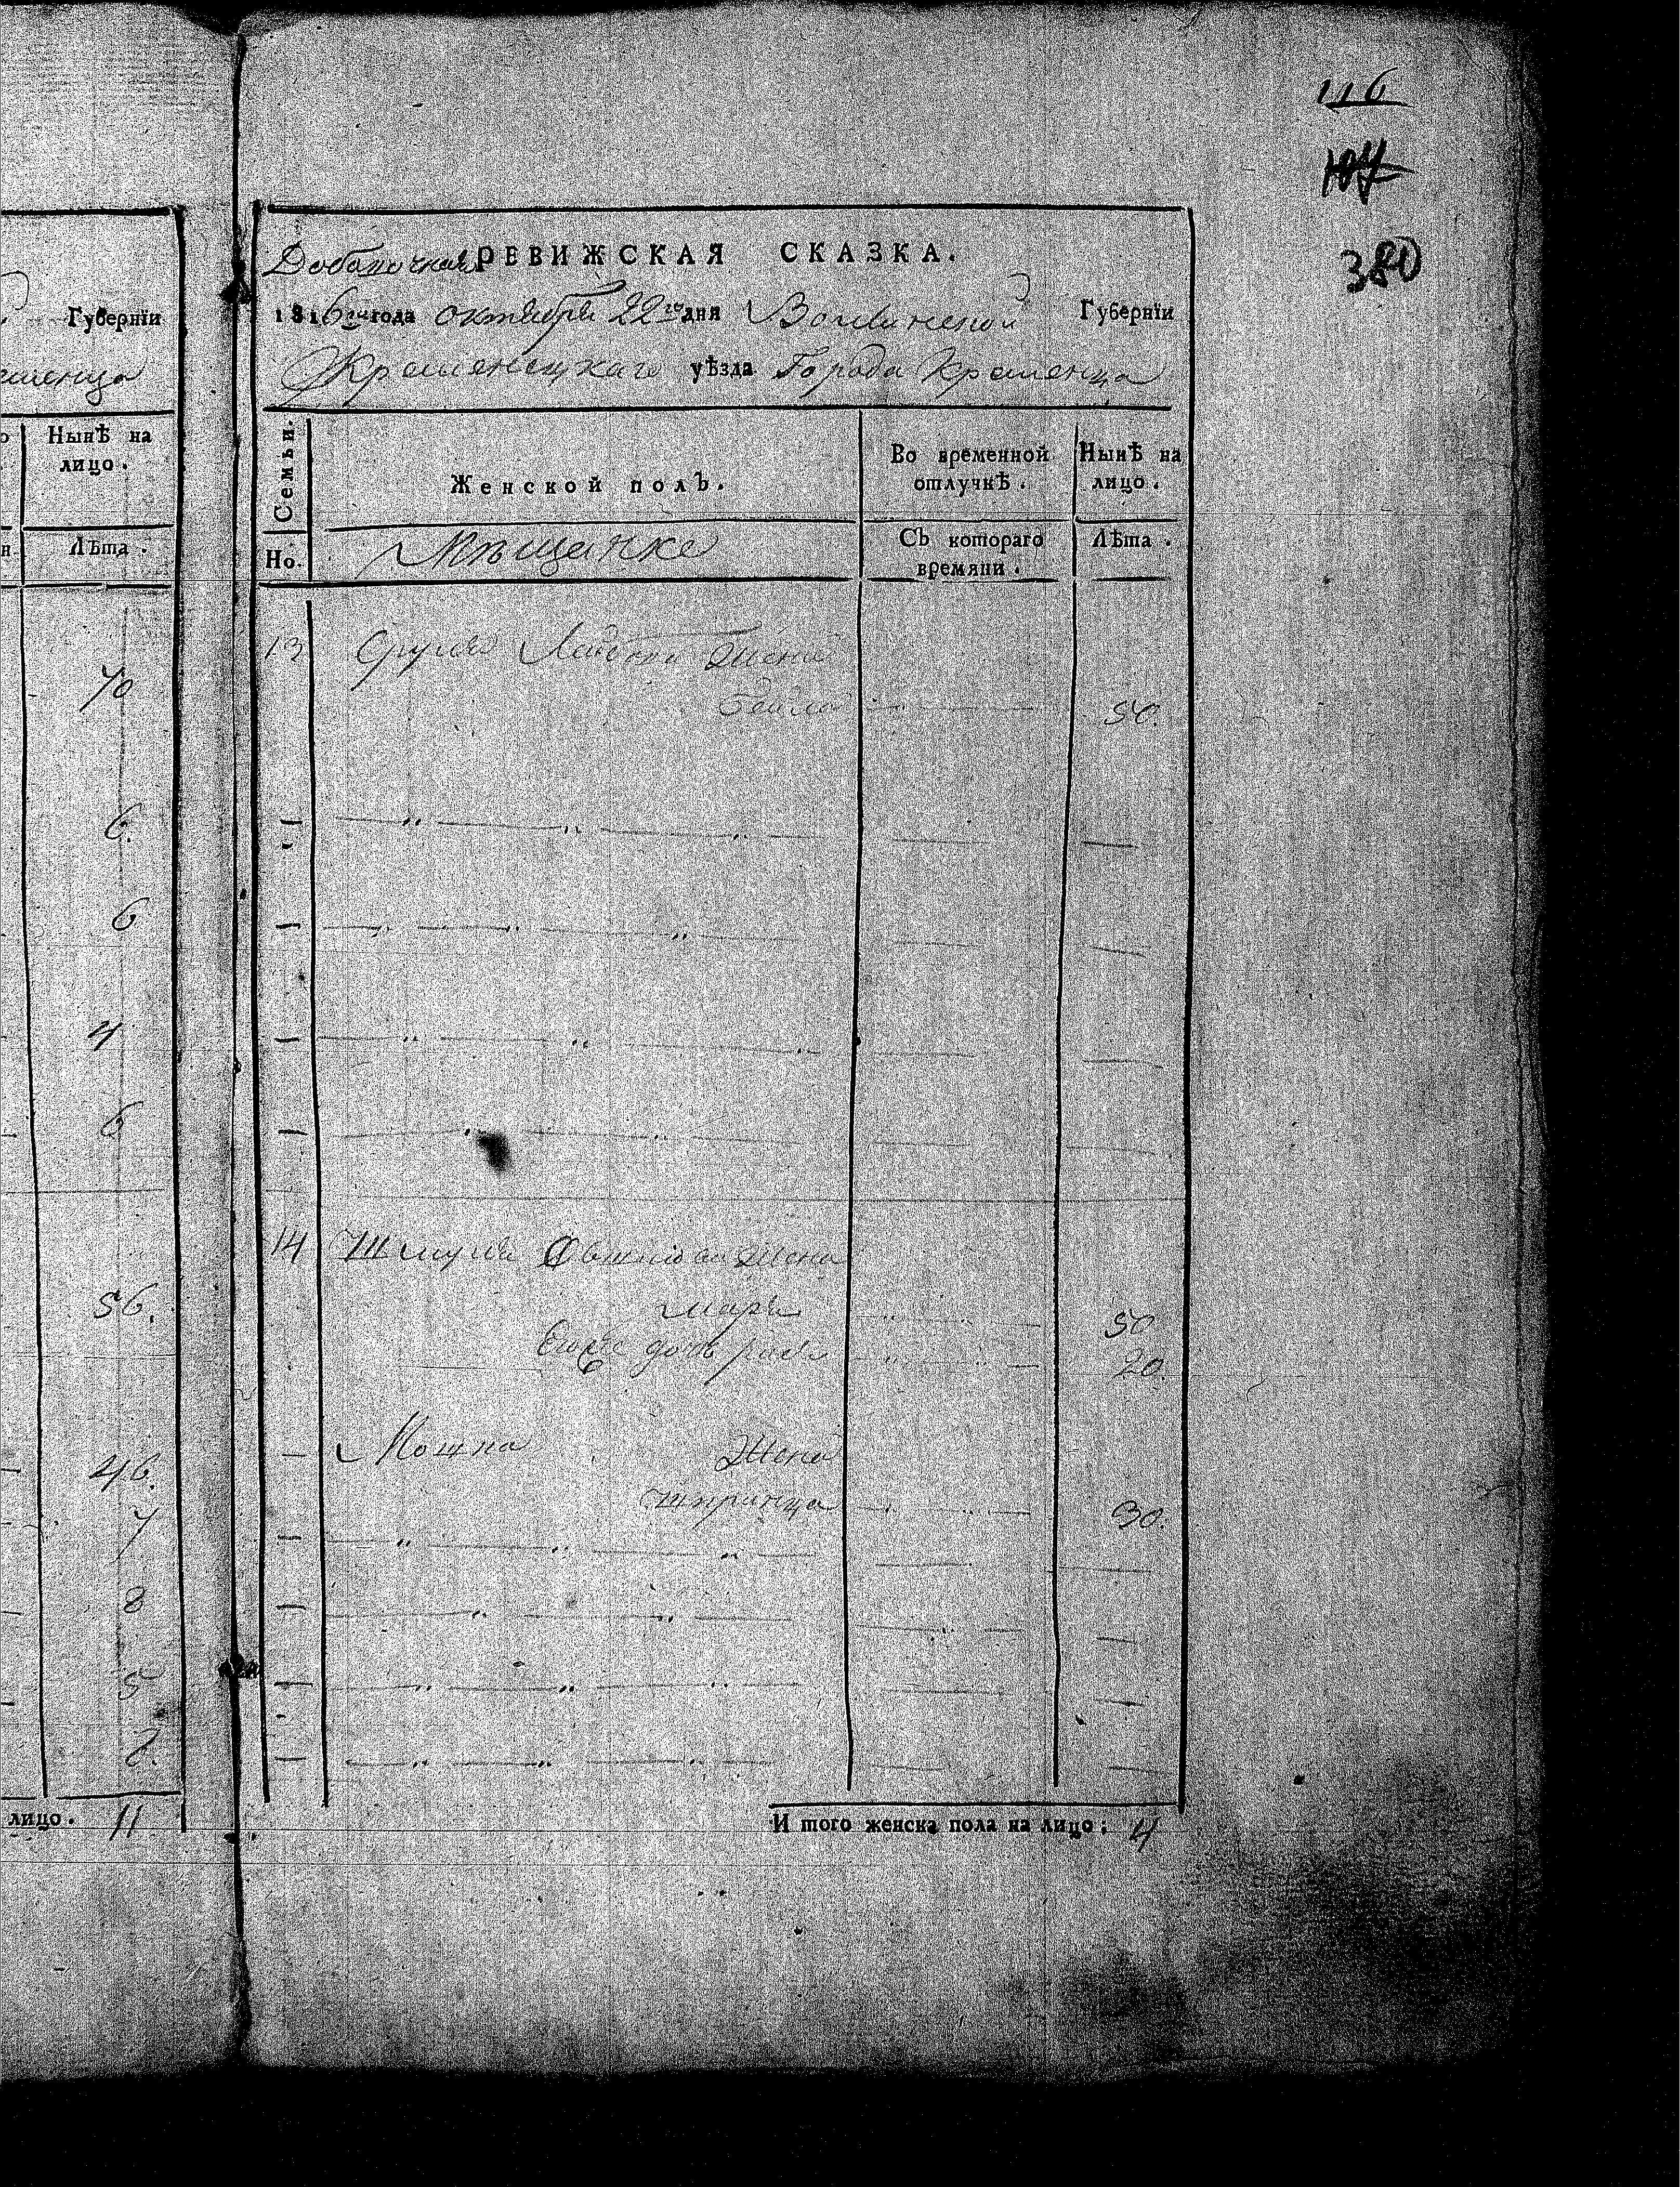 116
380
Губернїи
Нынѣ на
лицо.
Лѣта.
70
6.
6
4
6
56.
46.
7
8
5
6.
лицо. 11
Добавочная РЕВИЖСКАЯ СКАЗКА.
1816го года октября 22го дня Волынской Губернїи
Кременецкаго уѣзда Города Кременца
Семьи.
Женской полъ.
Во временной
отлучкѣ.
Нынѣ на
лицо.
Но.
Мѣщанке
Съ котораго
времяни.
Лѣта.
13 Сруля Лейбова жена
Бейла 50.
14 Шмуля жена
50
дочь 20.
Мошка жена
Шпринца 30.
И того женска пола на лицо: 4